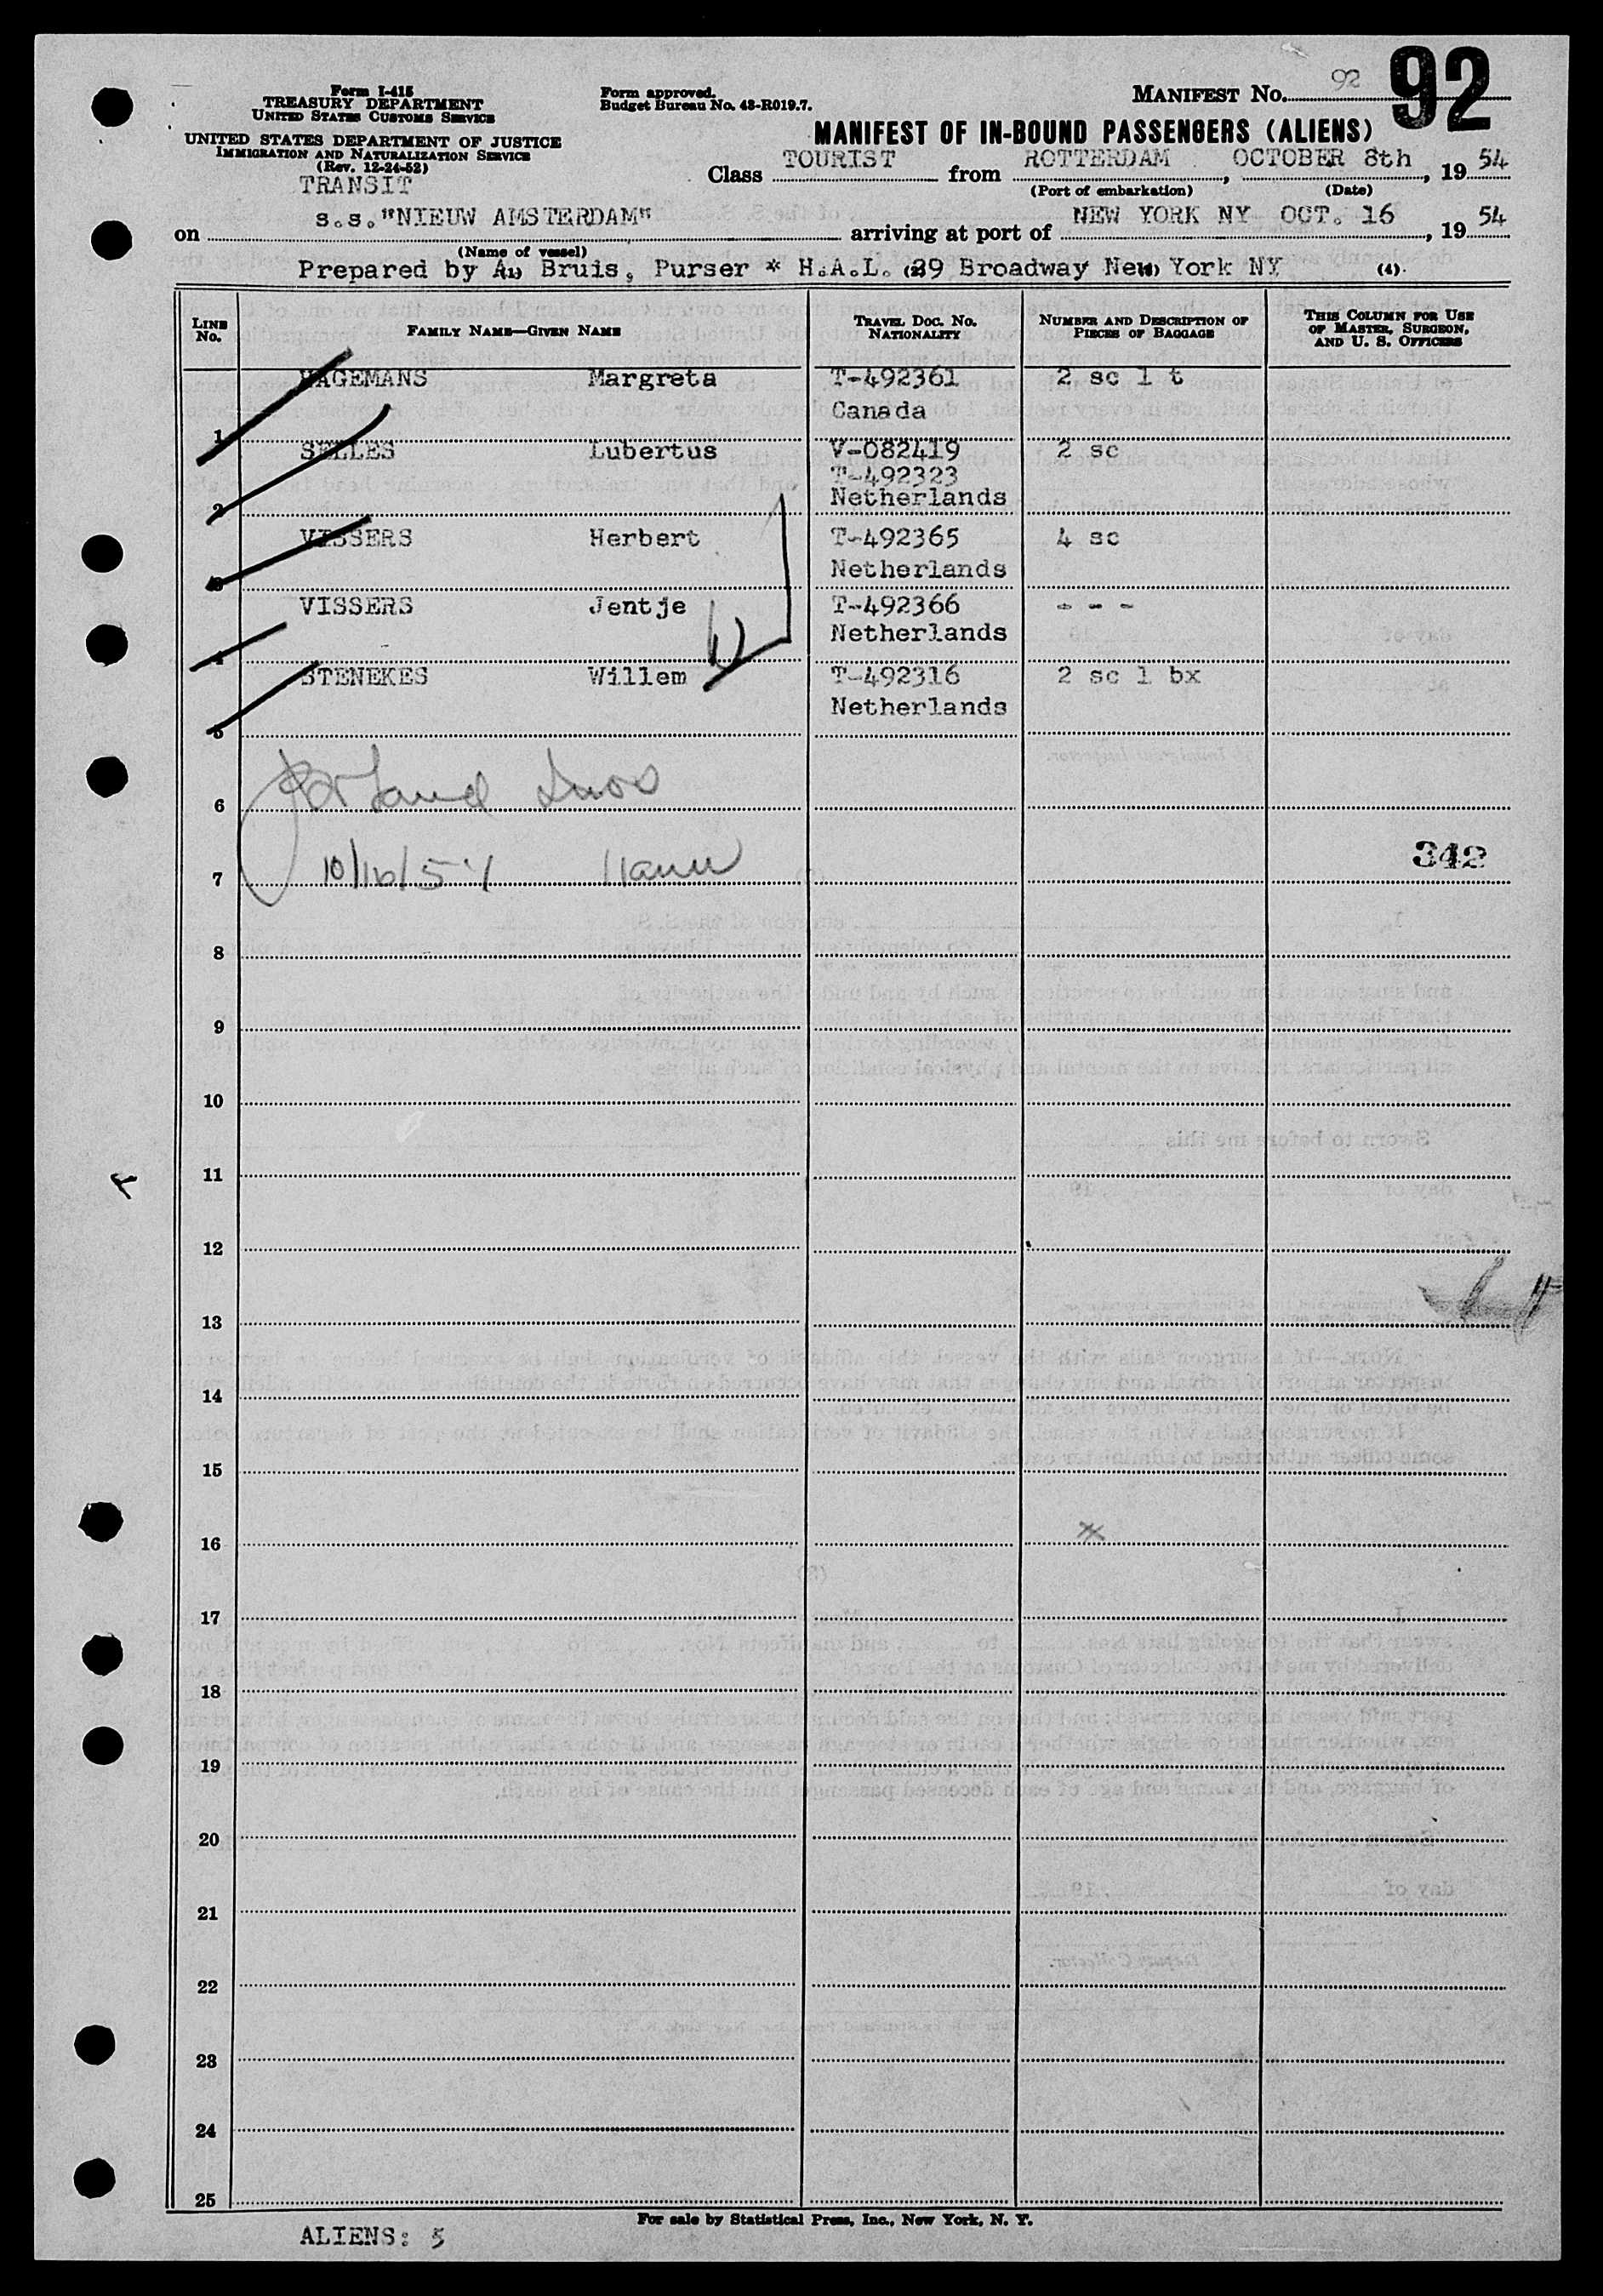 Form I-415
TREASURY DEPARTMENT
UNITED STATES CUSTOMS SERVICE
UNITED STATES DEPARTMENT OF JUSTICE
IMMIGRATION AND NATURALIZATION SERVICE
(Rev. 12-24-52)
TRANSIT
Form approved.
Budget Bureau No. 43-R019.7.
MANIFEST No. 92
92
MANIFEST OF IN-BOUND PASSENGERS (ALIENS)
Class TOURIST from ROTTERDAM, OCTOBER 8th, 1954
(Port of embarkation) (Date)
on s.s."NIEUW AMSTERDAM" arriving at port of NEW YORK NY OCT. 16, 1954
(Name of vessel)
Prepared by A. Bruis, Purser * H.A.L. 29 Broadway New York NY (4)
LINE No. FAMILY NAME—GIVEN NAME TRAVEL DOC. NO. NATIONALITY NUMBER AND DESCRIPTION OF PIECES OF BAGGAGE THIS COLUMN FOR USE OF MASTER, SURGEON, AND U. S. OFFICERS
HAGEMANS Margreta T-492361 2 sc 1 t
1 Canada
SELLES Lubertus V-082419 2 sc
T-492323
2 Netherlands
VISSERS Herbert T-492365 4 sc
3 Netherlands
VISSERS Jentje T-492366 - - -
4 Netherlands
STENEKES Willem T-492316 2 sc 1 bx
5 Netherlands
6
7 10/16/54
342
8
9
10
11
12
13
14
15
16
17
18
19
20
21
22
23
24
25
For sale by Statistical Press, Inc., New York, N. Y.
ALIENS: 5